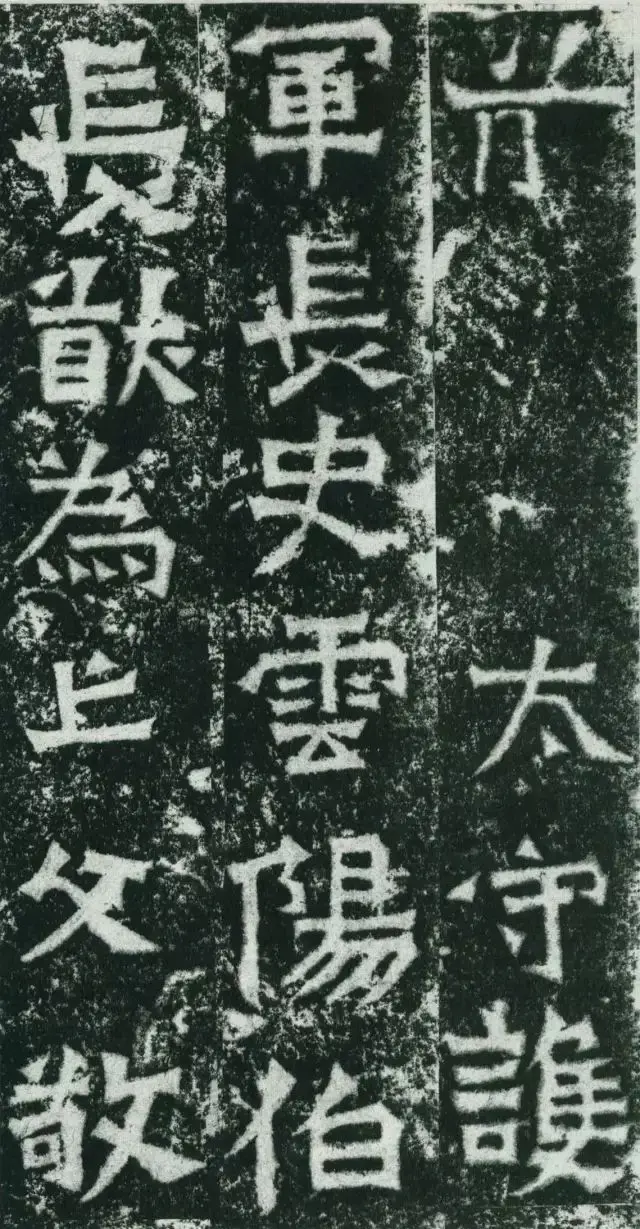 前太守護
軍長史雲陽伯
長猷為亡父敬